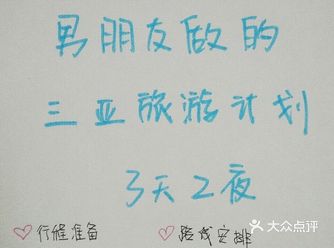 男朋友做的
三亚旅游计划
3天2夜
♡行程准备 ♡路线安排
大众点评